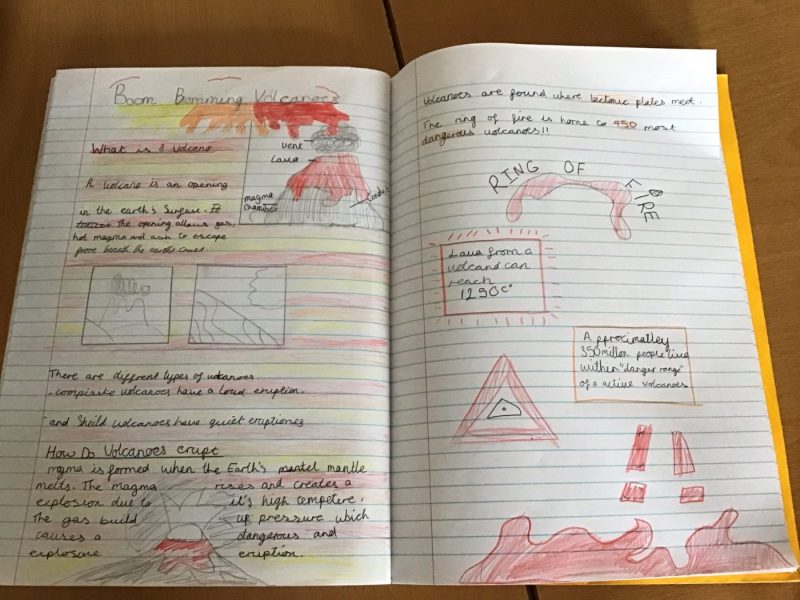 Boom Bomming Volcanoes
What is a volcano
vent
Lava
magma
Chamber
Conduit
A volcano is an opening
in the earth's Surfuse. It
The opening allows gas,
hot magma and ash to escape
from beneath the earths crust
There are diffrent types of volcanoes.
- compisite volcanoes have a loud eruption.
- and Sheild volcanoes have quiet eruptiones
How Do Volcanoes erupt
magma is formed when the Earth's mantel mantle
melts. The magma rises and creates a
explosion due to it's high tempetere.
The gas build up pressure which
causes a dangerous and
explosive eruption.
Volcanoes are found where tectonic plates meet.
The ring of fire is home to 450 most
dangerous volcanoes!!
RING OF FIRE
Lava from a
volcano can
reach
1250c°
Approximatley
350 million people live
within "danger range"
of a active volcanoes